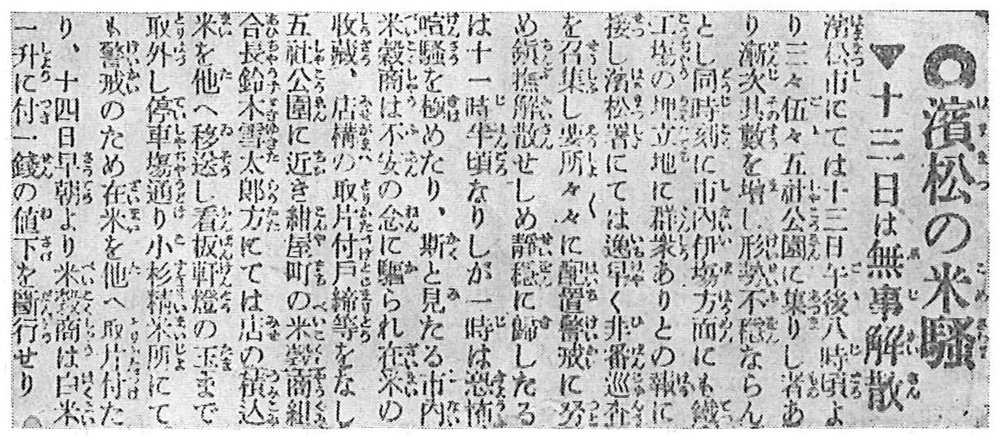 ◎濱松の米騷
▼十三日は無事解散
濱松市にては十三日午後八時頃よ
り三々伍々五社公園に集りし者あ
り漸次其數を增し形勢不穩ならん
とし同時刻に市内伊塲方面にも鐵
工塲の埋立地に群衆ありとの報に
接し濱松署にては逸早く非番巡査
を召集し要所々々に配置警戒に努
め鎭撫解散せしめ靜穩に歸したる
は十一時半頃なりしが一時は恐怖
喧騷を極めたり、斯と見たる市内
米穀商は不安の念に驅られ在米の
收藏、店構の取片付戶締等をなし
五社公園に近き紺屋町の米穀商組
合長鈴木雪太郎方にては店の積込
米を他へ移送し看板軒燈の玉まで
取外し停車塲通り小杉精米所にて
も警戒のため在米を他へ取片付た
り、十四日早朝より米穀商は白米
一升に付一錢の値下を斷行せり